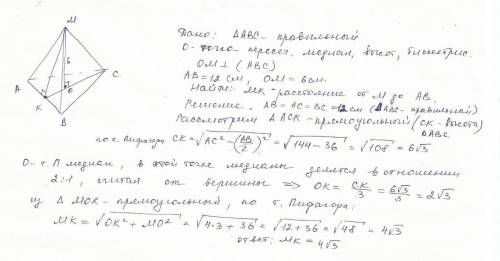 M
6
A
C
O
K
B
Дано: ΔABC - правильный
O - точка пересеч. медиан, высот, биссектрис.
OM ⊥ (ABC)
AB = 12 см, OM = 6 см.
Найти: MK - расстояние от M до AB.
Решение. AB = AC = BC = 12 см (ΔABC - правильный)
Рассмотрим ΔACK - прямоугольный (CK - высота)
ΔABC.
по т. Пифагора CK = √(AC² - (AB/2)²) = √(144 - 36) = √108 = 6√3
O - т. П медиан, в этой точке медианы делятся в отношении
2:1, считая от вершины ⇒ OK = CK/3 = 6√3/3 = 2√3
из Δ MOK - прямоугольный, по т. Пифагора:
MK = √(OK² + MO²) = √(4·3 + 36) = √(12 + 36) = √48 = 4√3
ответ: MK = 4√3